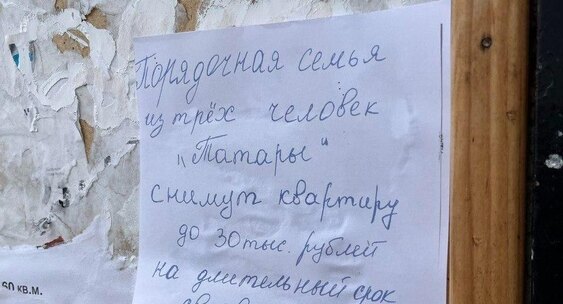 Порядочная семья
из трёх человек
„Татары"
снимут квартиру
до 30 тыс. рублей
на длительный срок
60 КВ.М.